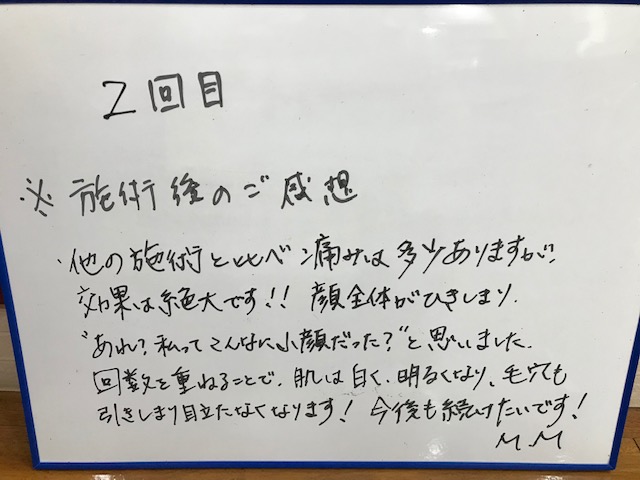 2回目
※ 施術後のご感想
・他の施術と比べ、痛みは多少ありますが、
効果は絶大です!! 顔全体がひきしまり、
"あれ?私ってこんなに小顔だった?"と思いました。
回数を重ねることで、肌は白く、明るくなり、毛穴も
引きしまり目立たなくなります! 今後も続けたいです!
M.M